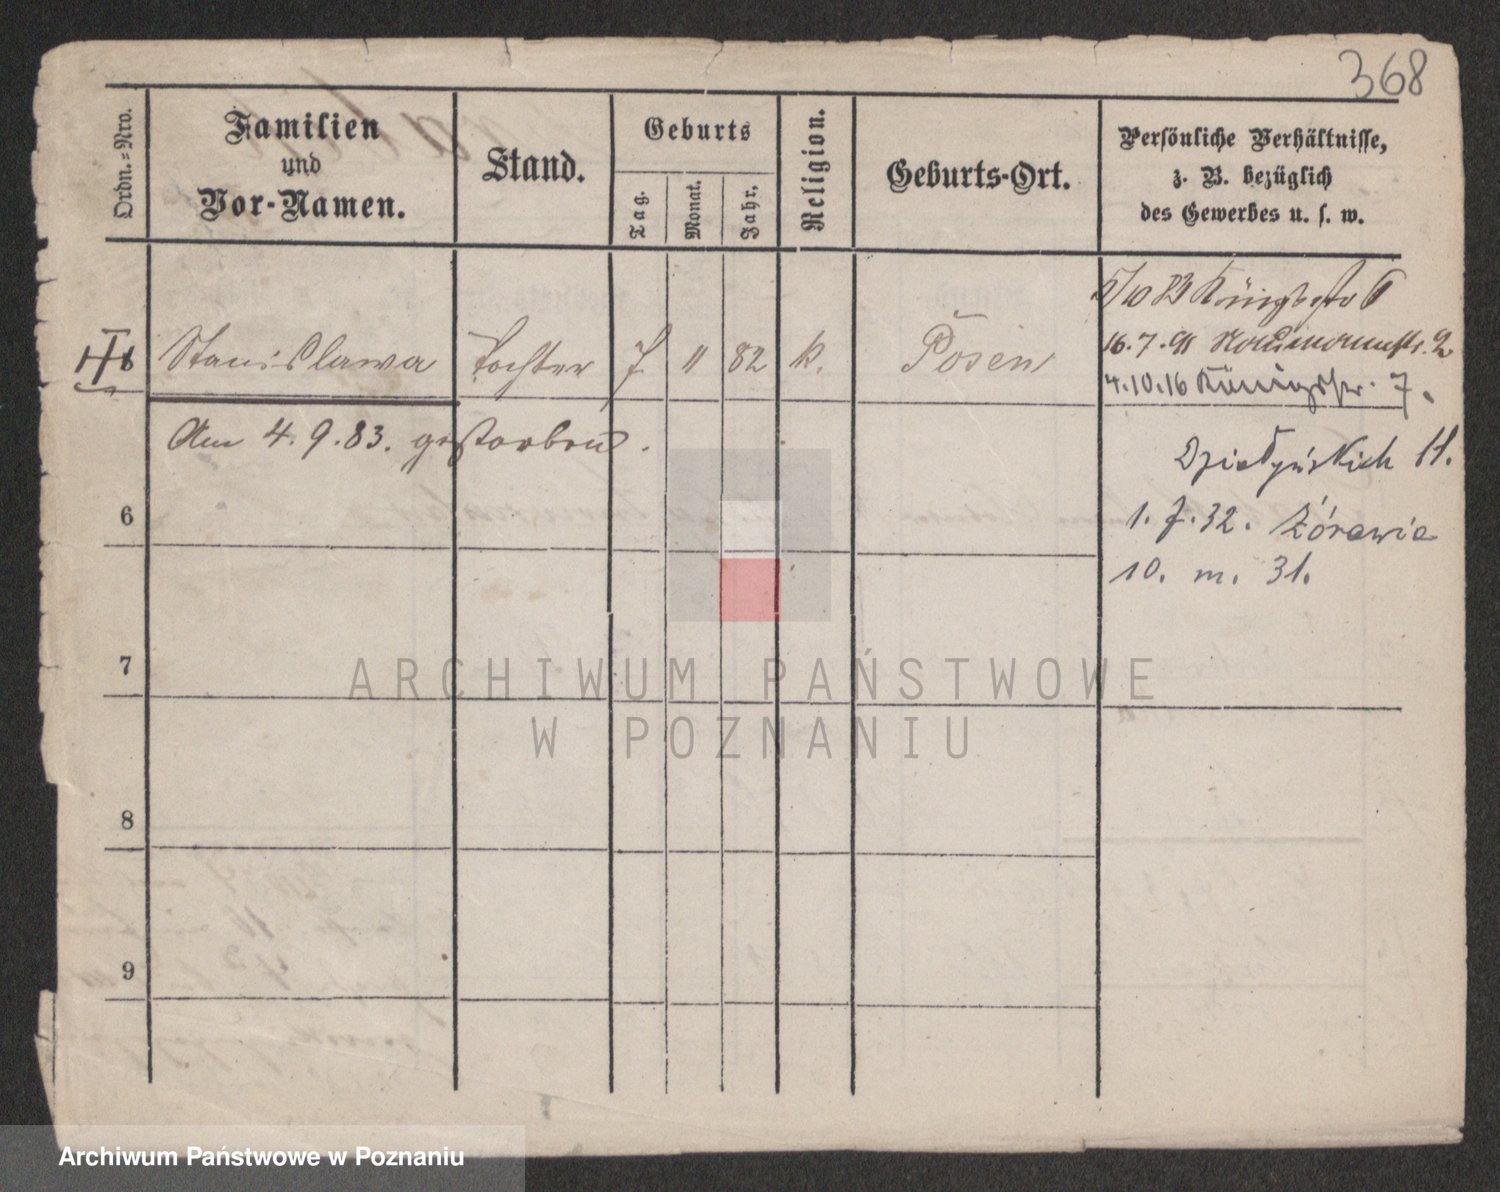 368
Ordn.=Nro.
Familien
und
Vor-Namen.
Stand.
Geburts
Tag.
Monat.
Jahr.
Religion.
Geburts-Ort.
Persönliche Verhältnisse,
z. B. bezüglich
des Gewerbes u. s. w.
Stanislawa Tochter 7 11 82 k. Posen
5/10 83 Königsstr 6
16.7.91 2
4.10.16 Königsstr. 7.
Am 4.9.83. gestorben.
Działyńskich 11.
6
1. 7. 32. Żórawia
10. m. 31.
7
8
9
ARCHIWUM PAŃSTWOWE
W POZNANIU
Archiwum Państwowe w Poznaniu